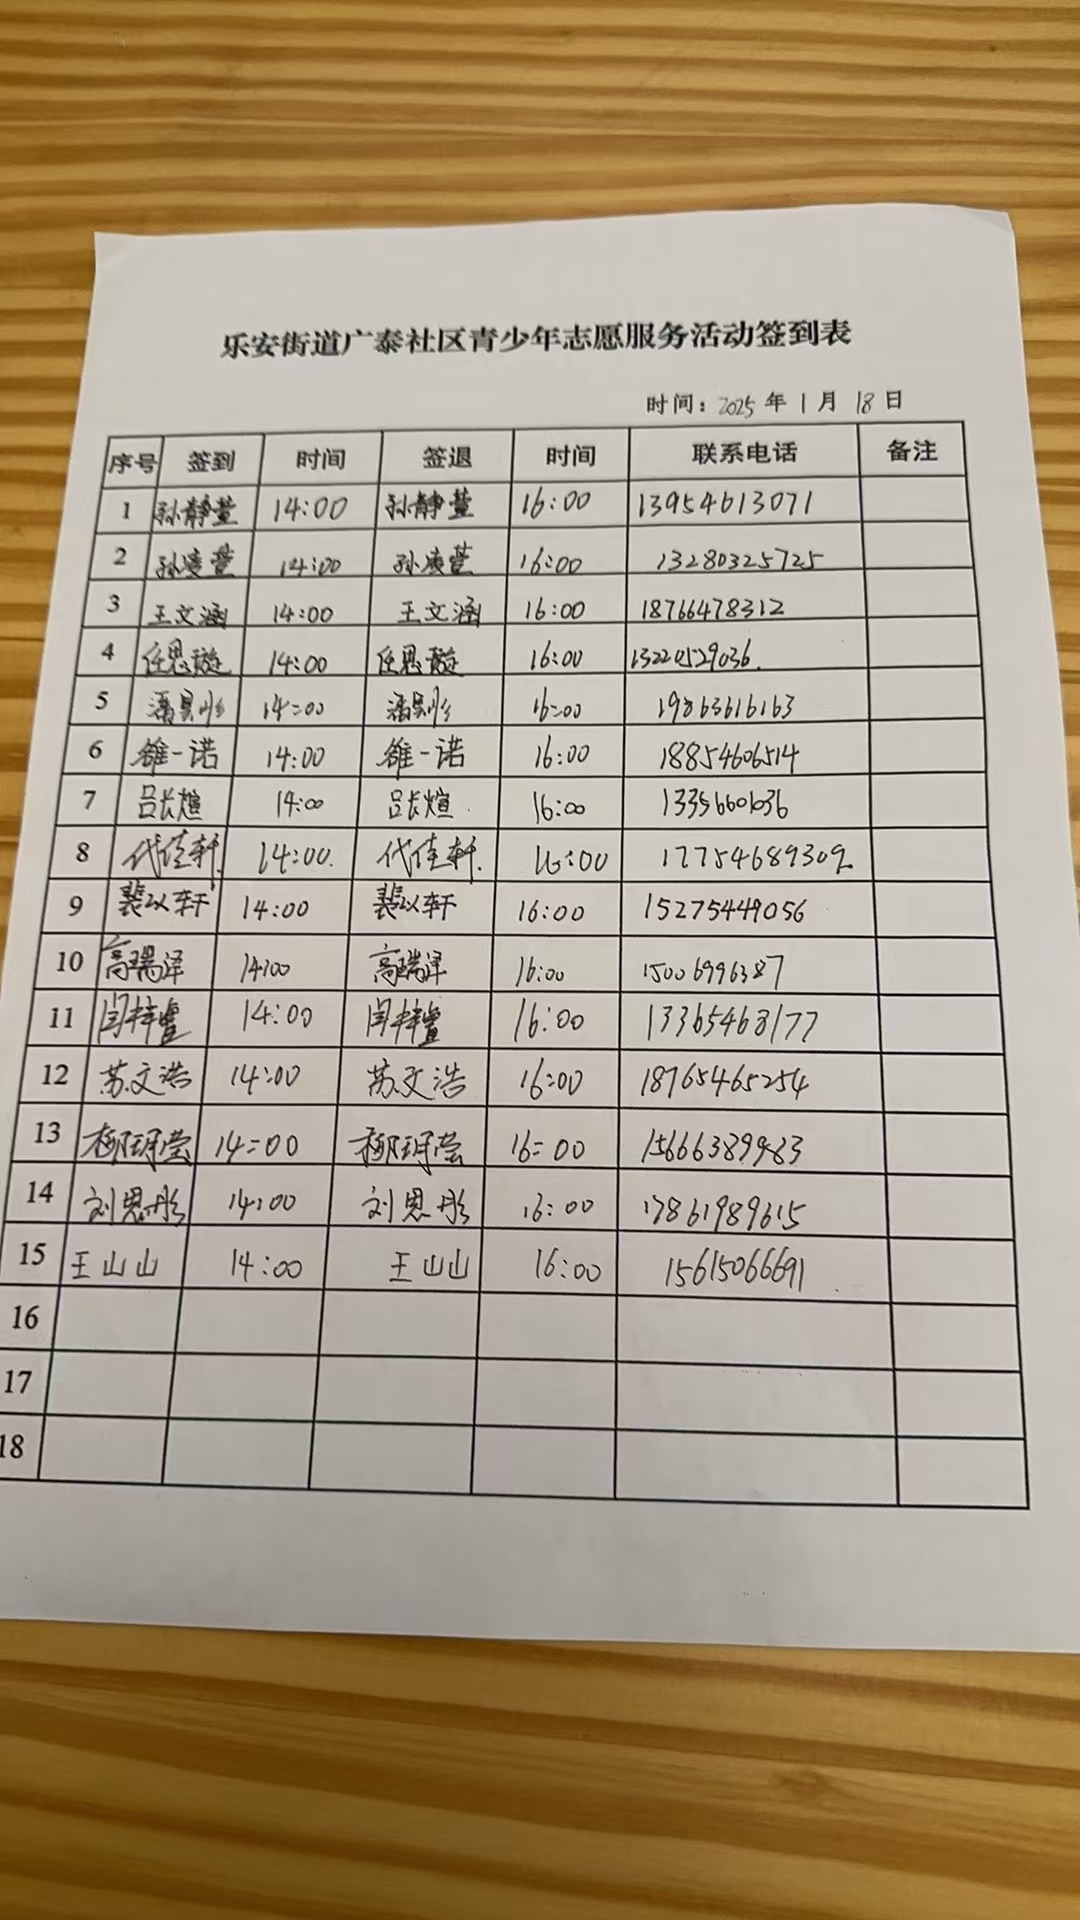 乐安街道广泰社区青少年志愿服务活动签到表
时间：2025 年 1 月 18 日
序号 签到 时间 签退 时间 联系电话 备注
1 孙静萱 14:00 孙静萱 16:00 13954613071
2 孙凌萱 14:00 孙凌萱 16:00 13280325725
3 王文涵 14:00 王文涵 16:00 18766478312
4 任思璇 14:00 任思璇 16:00 13220529036.
5 潘昊彤 14:00 潘昊彤 16:00 19863616163
6 雒一诺 14:00 雒一诺 16:00 18854606514
7 吕长煊 14:00 吕长煊 16:00 13356601036
8 代佳轩. 14:00. 代佳轩. 16:00 17754689309
9 裴以轩 14:00 裴以轩 16:00 15275449056
10 高瑞泽 14:00 高瑞泽 16:00 15006996387
11 14:00 16:00 13365468177
12 苏文浩 14:00 苏文浩 16:00 18765465254
13 柳玥莹 14:00 柳玥莹 16:00 15666389983
14 刘恩彤 14:00 刘恩彤 16:00 17861989615
15 王山山 14:00 王山山 16:00 15615066691
16
17
18